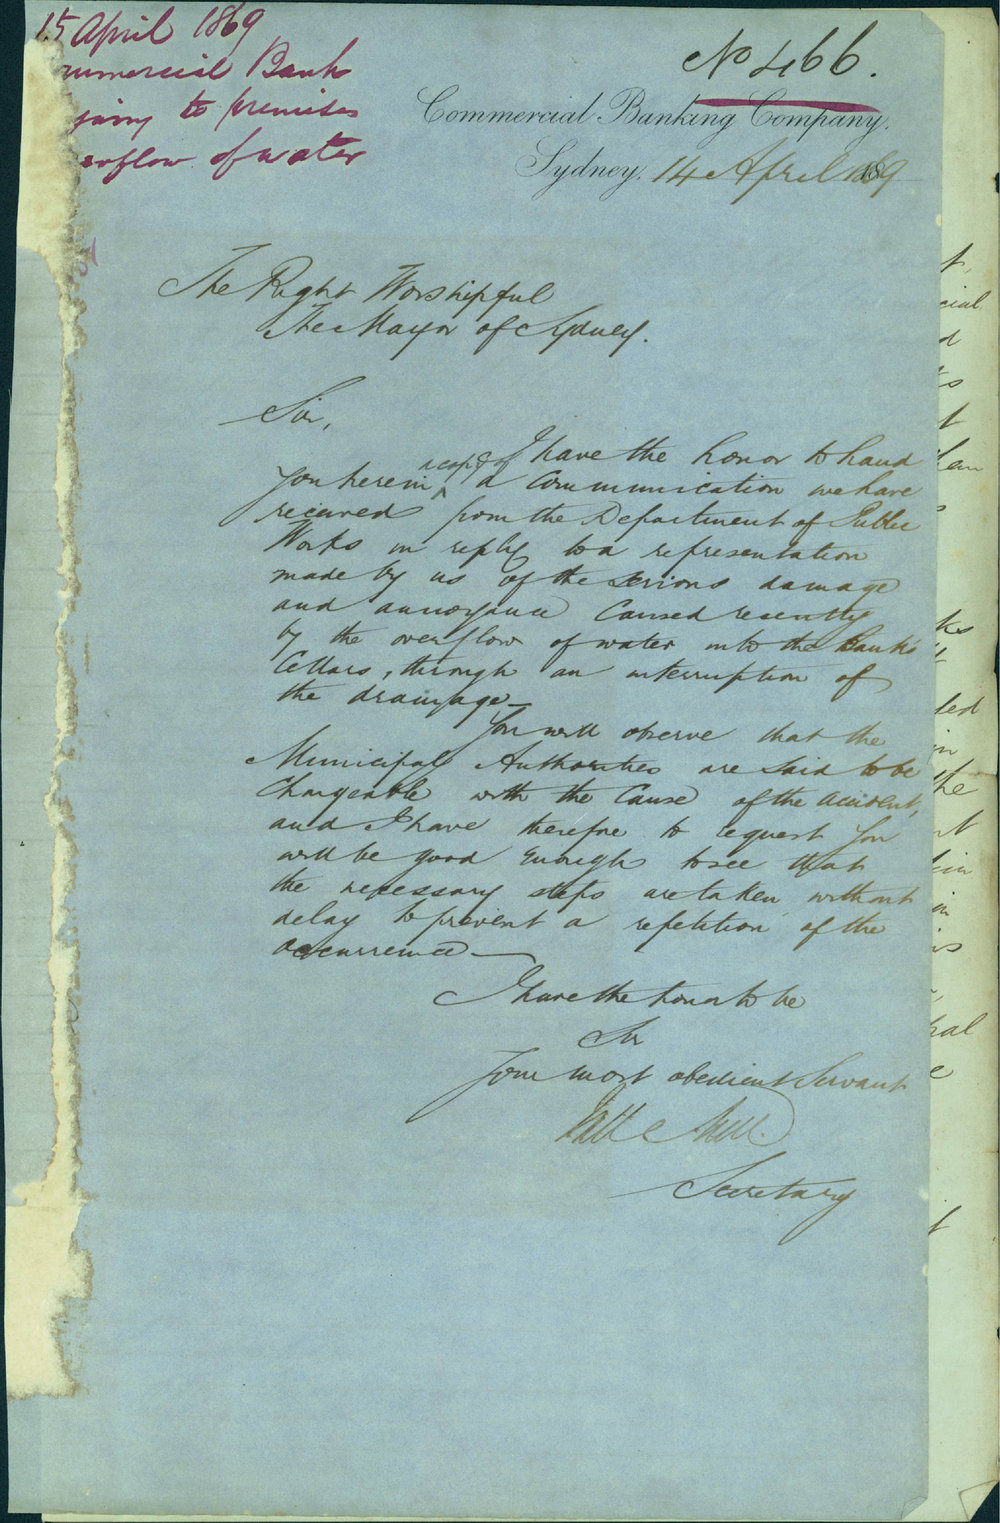 15 April 1869
Commercial Bank
injury to premises
overflow of water
No 466.
Commercial Banking Company.
Sydney, 14 April 1869
The Right Worshipful
The Mayor of Sydney.
Sir,
I have the honor to hand
you herein a copy of a Communication we have
received from the Department of Public
Works in reply to a representation
made by us of the serious damage
and annoyance Caused recently
by the overflow of water into the Bank's
Cellars, through an interruption of
the drainage—
You will observe that the
Municipal Authorities are said to be
Chargeable with the Cause of the accident,
and I have therefore to request you
will be good enough to see that
the necessary steps are taken without
delay to prevent a repetition of the
occurrence—
I have the honor to be
Sir
Your most obedient Servant
Secretary